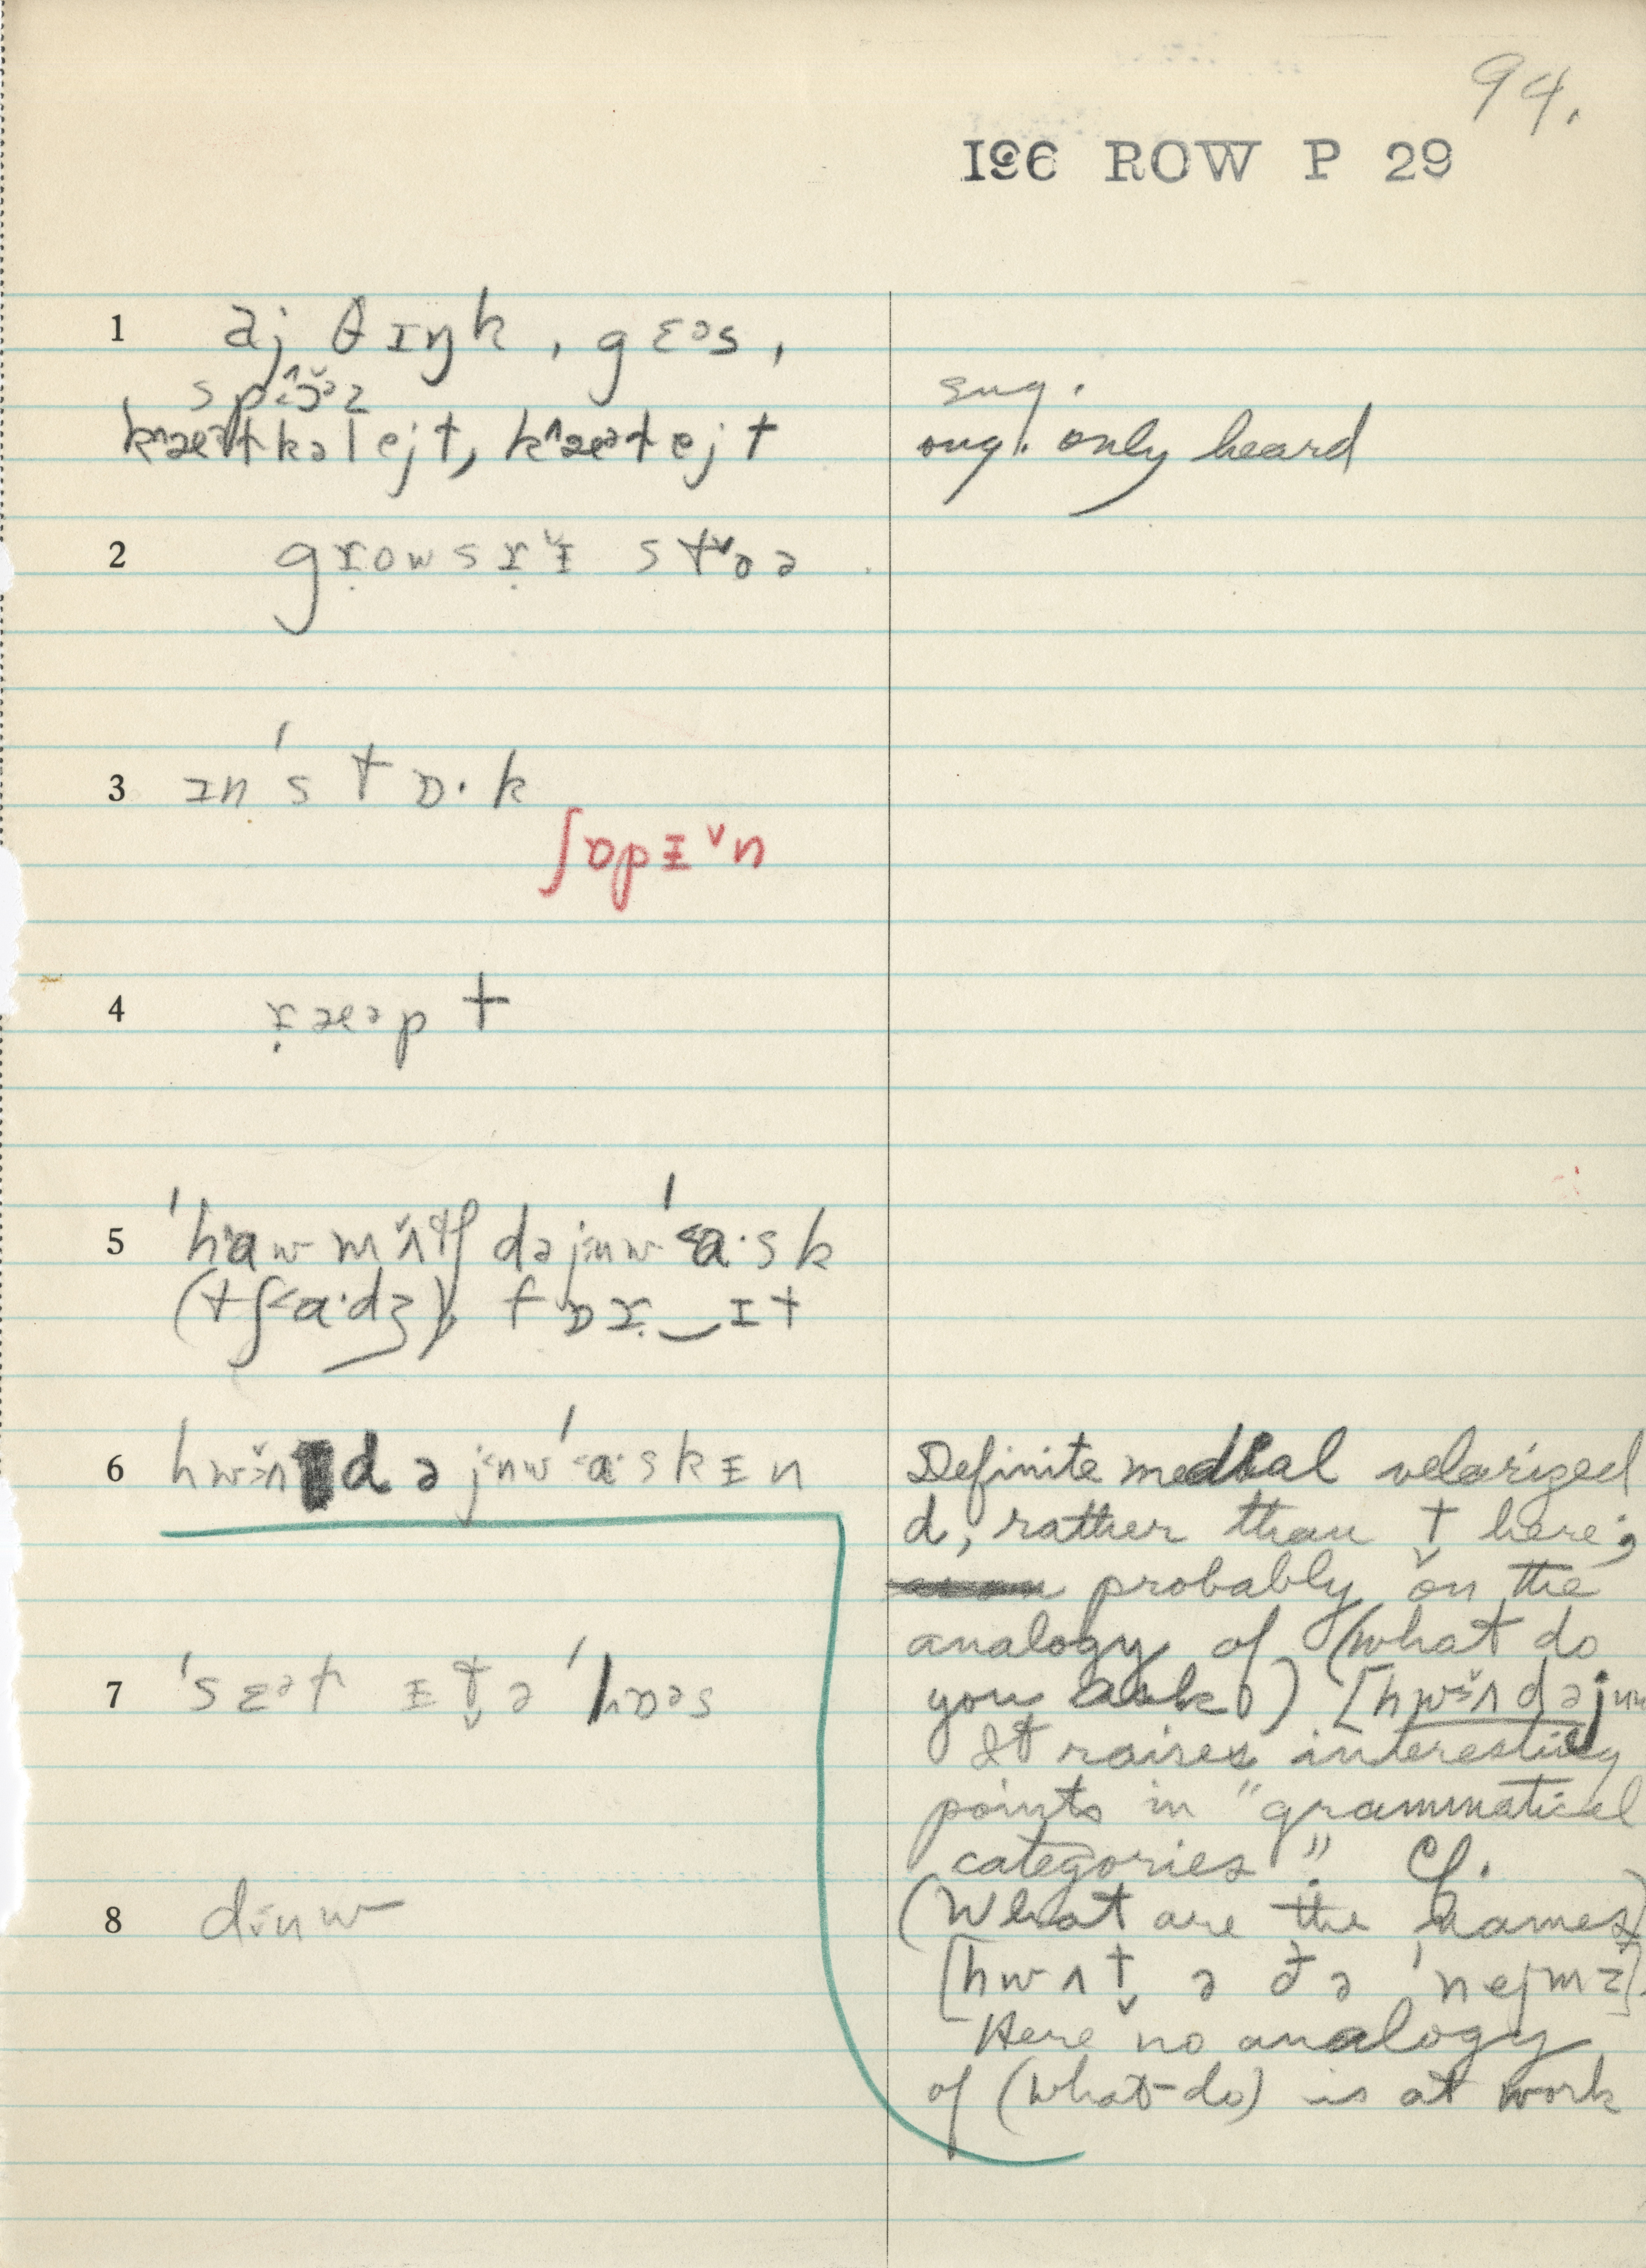 94.
196 ROW P 29
1 aj θɪŋk, gɛəs,
sug.
kæətkəlejt, kæətejt sug. only heard
2 groʊsrɪ̌ stɒə
3 ɪn 'stɒ·k
ʃɒpɪ̌n
4 ræəpt
5 'haw mʌ̌tʃ dəjuw 'a·sk
(tʃa·dʒ), fɒr‿ɪt
6 hwʌ d ə juw 'a·skɪn Definite medial velarized
d, rather than t here;
probably on the
analogy of (what do
7 'sɛət ɪt̬ə 'hɒəs you ask) [hwʌ dəjuw
It raises interesting
points in "grammatical
categories". Cf.
8 duw (What are the names)
[hwʌt̬ ə ðə 'nejmz].
Here no analogy
of (what-do) is at work